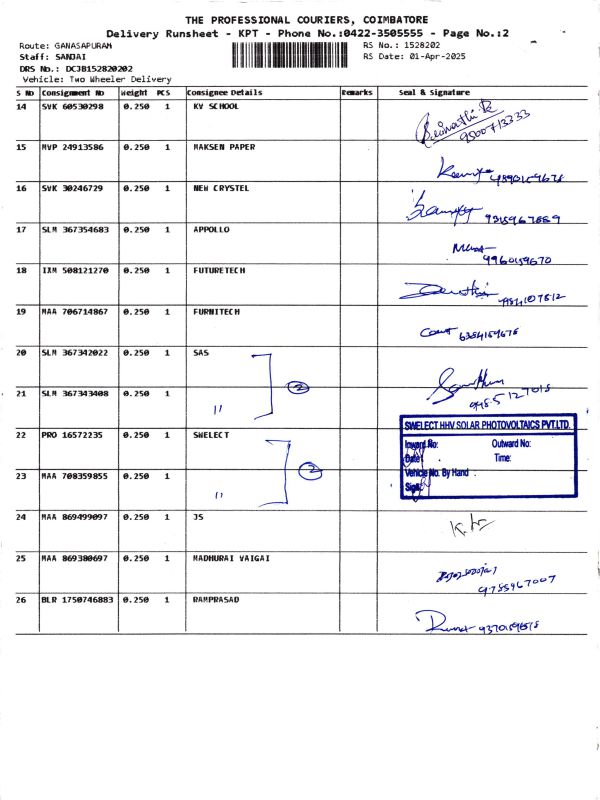 THE PROFESSIONAL COURIERS, COIMBATORE
Delivery Runsheet - KPT - Phone No.:0422-3505555 - Page No.:2
Route: GANASAPURAM RS No.: 1528202
Staff: SANJAI RS Date: 01-Apr-2025
DRS No.: DCJB152820202
Vehicle: Two Wheeler Delivery
S No Consignment No Weight PCS Consignee Details Remarks Seal & signature
14 SVK 60530298 0.250 1 KV SCHOOL
9500713333
15 MVP 24913586 0.250 1 MAKSEN PAPER
16 SVK 30246729 0.250 1 NEW CRYSTEL
17 SLM 367354683 0.250 1 APPOLLO
9960159670
18 IXM 508121270 0.250 1 FUTURETECH
19 MAA 706714867 0.250 1 FURNITECH
20 SLM 367342022 0.250 1 SAS
2
21 SLM 367343408 0.250 1 "
22 PRO 16572235 0.250 1 SWELECT
SWELECT HHV SOLAR PHOTOVOLTAICS PVT.LTD.
Inward No: Outward No:
Date: Time:
2
Vehicle No. By Hand
23 MAA 708359855 0.250 1 "
Sign:
24 MAA 869499097 0.250 1 JS
25 MAA 869380697 0.250 1 MADHURAI VAIGAI
9755967007
26 BLR 1750746883 0.250 1 RAMPRASAD